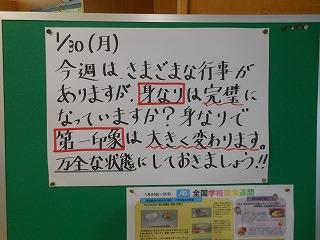 1/30(月)
今週は、さまざまな行事が
ありますが、身なりは完璧に
なっていますか?身なりで
第一印象は大きく変わります。
万全な状態にしておきましょう!!
1月24日~30日
全国学校給食週間